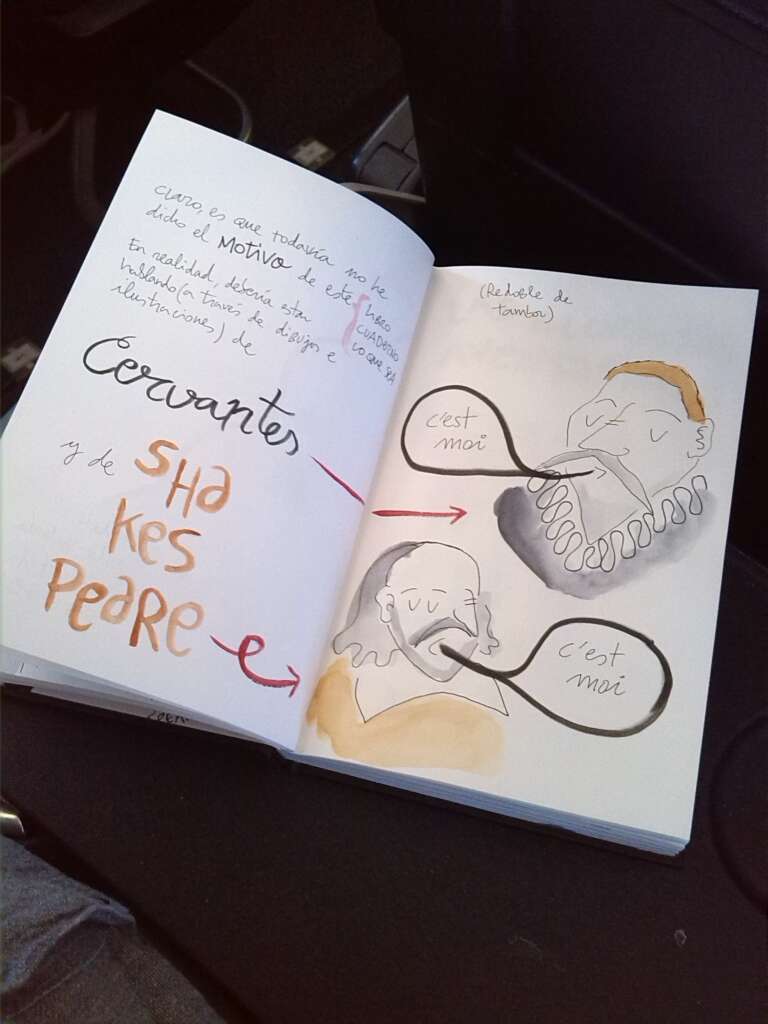 claro, es que todavía no he
dicho el MOTIVO de este { libro
CUADERNO
LO QUE SEA
En realidad, debería estar
hablando (a través de dibujos e
ilustraciones) de
Cervantes
y de SHa
Kes
PeaRe
(Redoble de
tambor)
c'est
moi
c'est
moi